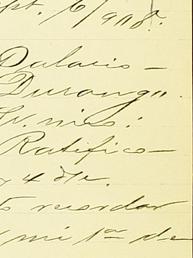 pt. 6/918.
Palacio—
Durango.
Sr. mio:
Ratifico—
y 4 de
recordar
mi 1a de